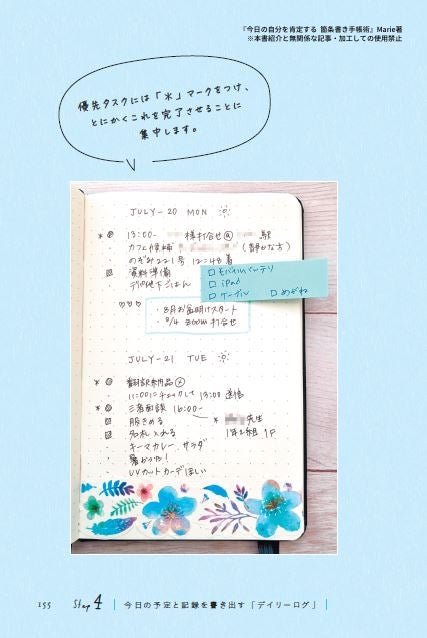 『今日の自分を肯定する 箇条書き手帳術』Marie著
※本書紹介と無関係な記事・加工しての使用禁止
優先タスクには「*」マークをつけ、
とにかくこれを完了させることに
集中します。
JULY-20 MON
13:00- 様打合せ@ 駅
カフェ候補 (静かな方)
のぞみ221号 12:48着
資料準備
デパ地下ごはん
□ モバイルバッテリ
□ iPad
□ ケーブル □ めがね
・8月お盆明けスタート
・8/4 ZOOM 打合せ
JULY-21 TUE
翻訳納品
11:00にチェックして 13:00 送信
三者面談 16:00-
服きめる * 先生
名札入れる 1年2組 1F
キーマカレー サラダ
暑かった!
UVカットカーデほしい
155 Step 4 今日の予定と記録を書き出す「デイリーログ」